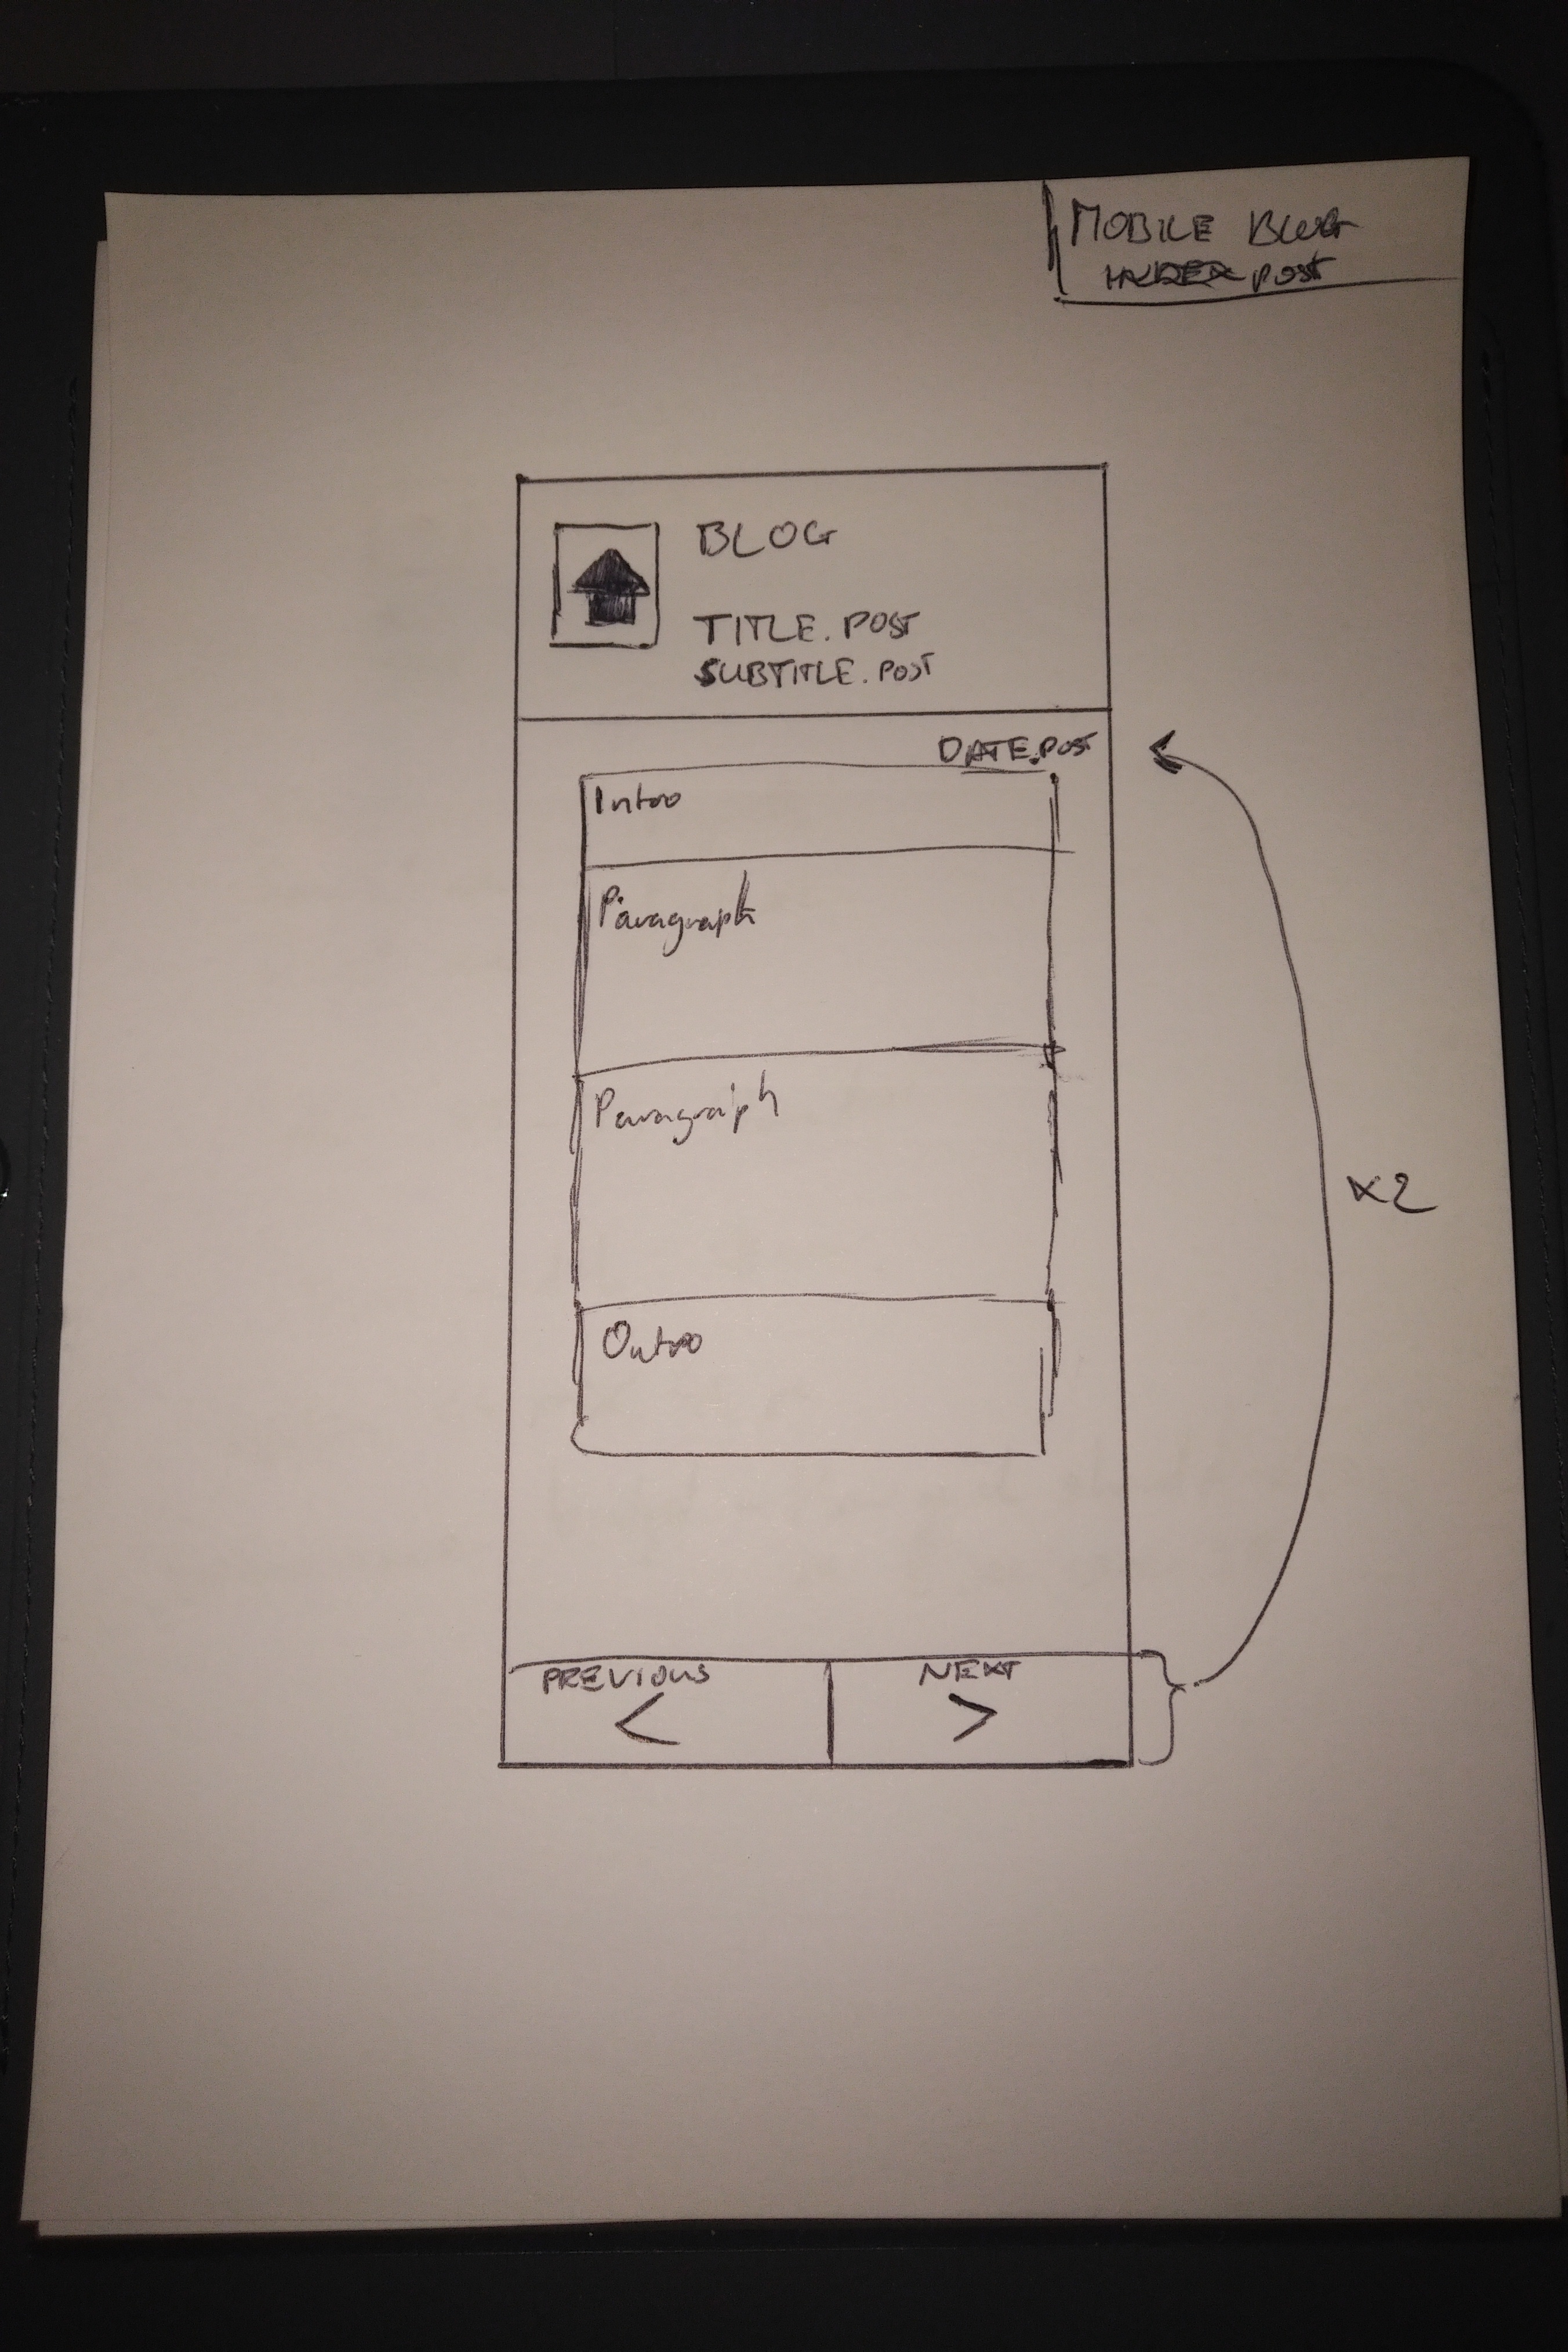 MOBILE BLOG
INDEX POST
BLOG
TITLE.POST
SUBTITLE.POST
DATE.POST
Intro
Paragraph
Paragraph
x2
Outro
PREVIOUS NEXT
< >